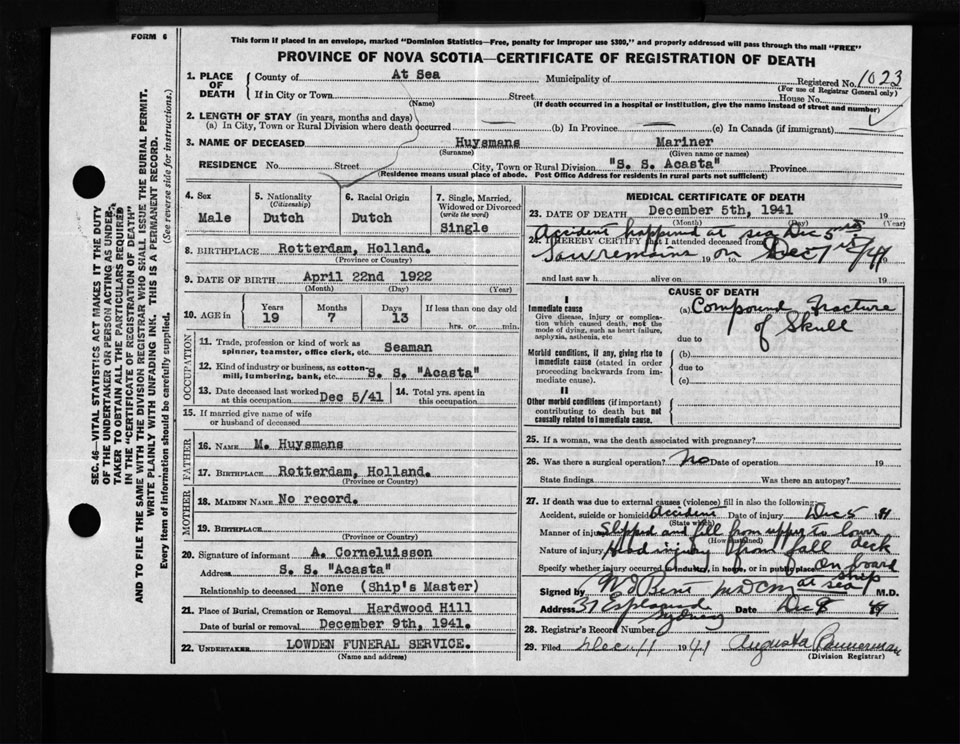 FORM 6
This form if placed in an envelope, marked "Dominion Statistics—Free, penalty for improper use $300," and properly addressed will pass through the mail "FREE"
PROVINCE OF NOVA SCOTIA—CERTIFICATE OF REGISTRATION OF DEATH
SEC. 46—VITAL STATISTICS ACT MAKES IT THE DUTY
OF THE UNDERTAKER OR PERSON ACTING AS UNDER-
TAKER TO OBTAIN ALL THE PARTICULARS REQUIRED
IN THE "CERTIFICATE OF REGISTRATION OF DEATH"
AND TO FILE THE SAME WITH THE DIVISION REGISTRAR WHO SHALL ISSUE THE BURIAL PERMIT.
WRITE PLAINLY WITH UNFADING INK. THIS IS A PERMANENT RECORD.
Every item of information should be carefully supplied. (See reverse side for instructions.)
1. PLACE OF DEATH
County of At Sea Municipality of Registered No. 1023
(For use of Registrar General only)
If in City or Town Street House No.
(Name) (If death occurred in a hospital or institution, give the name instead of street and number)
2. LENGTH OF STAY (in years, months and days)
(a) In City, Town or Rural Division where death occurred (b) In Province (c) In Canada (if immigrant)
3. NAME OF DECEASED Huysmans Mariner
(Surname) (Given name or names)
RESIDENCE No. Street City, Town or Rural Division "S. S. Acasta" Province
(Residence means usual place of abode. Post Office Address for residents in rural parts not sufficient)
4. Sex
Male
5. Nationality
(Citizenship)
Dutch
6. Racial Origin
Dutch
7. Single, Married,
Widowed or Divorced
(write the word)
Single
8. BIRTHPLACE Rotterdam, Holland.
(Province or Country)
9. DATE OF BIRTH April 22nd 1922
(Month) (Day) (Year)
10. AGE in
Years Months Days If less than one day old
19 7 13 hrs. or min.
OCCUPATION
11. Trade, profession or kind of work as
spinner, teamster, office clerk, etc. Seaman
12. Kind of industry or business, as cotton-
mill, lumbering, bank, etc. S. S. "Acasta"
13. Date deceased last worked
at this occupation Dec 5/41
14. Total yrs. spent in
this occupation
15. If married give name of wife
or husband of deceased
FATHER
16. NAME M. Huysmans
17. BIRTHPLACE Rotterdam, Holland.
(Province or Country)
MOTHER
18. MAIDEN NAME No record.
19. BIRTHPLACE
(Province or Country)
20. Signature of informant A. Corneluisson
Address S. S. "Acasta"
Relationship to deceased None (Ship's Master)
21. Place of Burial, Cremation or Removal Hardwood Hill
Date of burial or removal December 9th, 1941.
22. UNDERTAKER LOWDEN FUNERAL SERVICE.
(Name and address)
MEDICAL CERTIFICATE OF DEATH
23. DATE OF DEATH December 5th, 1941 19
(Month) (Day) (Year)
Accident happened at sea Dec 5
24. I HEREBY CERTIFY that I attended deceased from
Saw remains 19 on Dec 7 /41 19
and last saw h alive on 19
CAUSE OF DEATH
I
Immediate cause
Give disease, injury or complica-
tion which caused death, not the
mode of dying, such as heart failure,
asphyxia, asthenia, etc
(a) Compound Fracture
of Skull
due to
Morbid conditions, if any, giving rise to
immediate cause (stated in order
proceeding backwards from im-
mediate cause).
(b)
due to
(c)
II
Other morbid conditions (if important)
contributing to death but not
causally related to immediate cause.
25. If a woman, was the death associated with pregnancy?
26. Was there a surgical operation? No Date of operation 19
State findings Was there an autopsy?
27. If death was due to external causes (violence) fill in also the following:
Accident, suicide or homicide? accident Date of injury Dec 5 41
(State which)
Manner of injury Slipped and fell from upper to lower
(How sustained)
Nature of injury Head injury from fall deck
Specify whether injury occurred in industry, in home, or in public place on board
ship
at sea
Signed by Bent M.D.
Address 37 Esplanade Date Dec 8
Sydney
28. Registrar's Record Number
29. Filed Dec 11 1941 Augusta Bannerman
(Division Registrar)